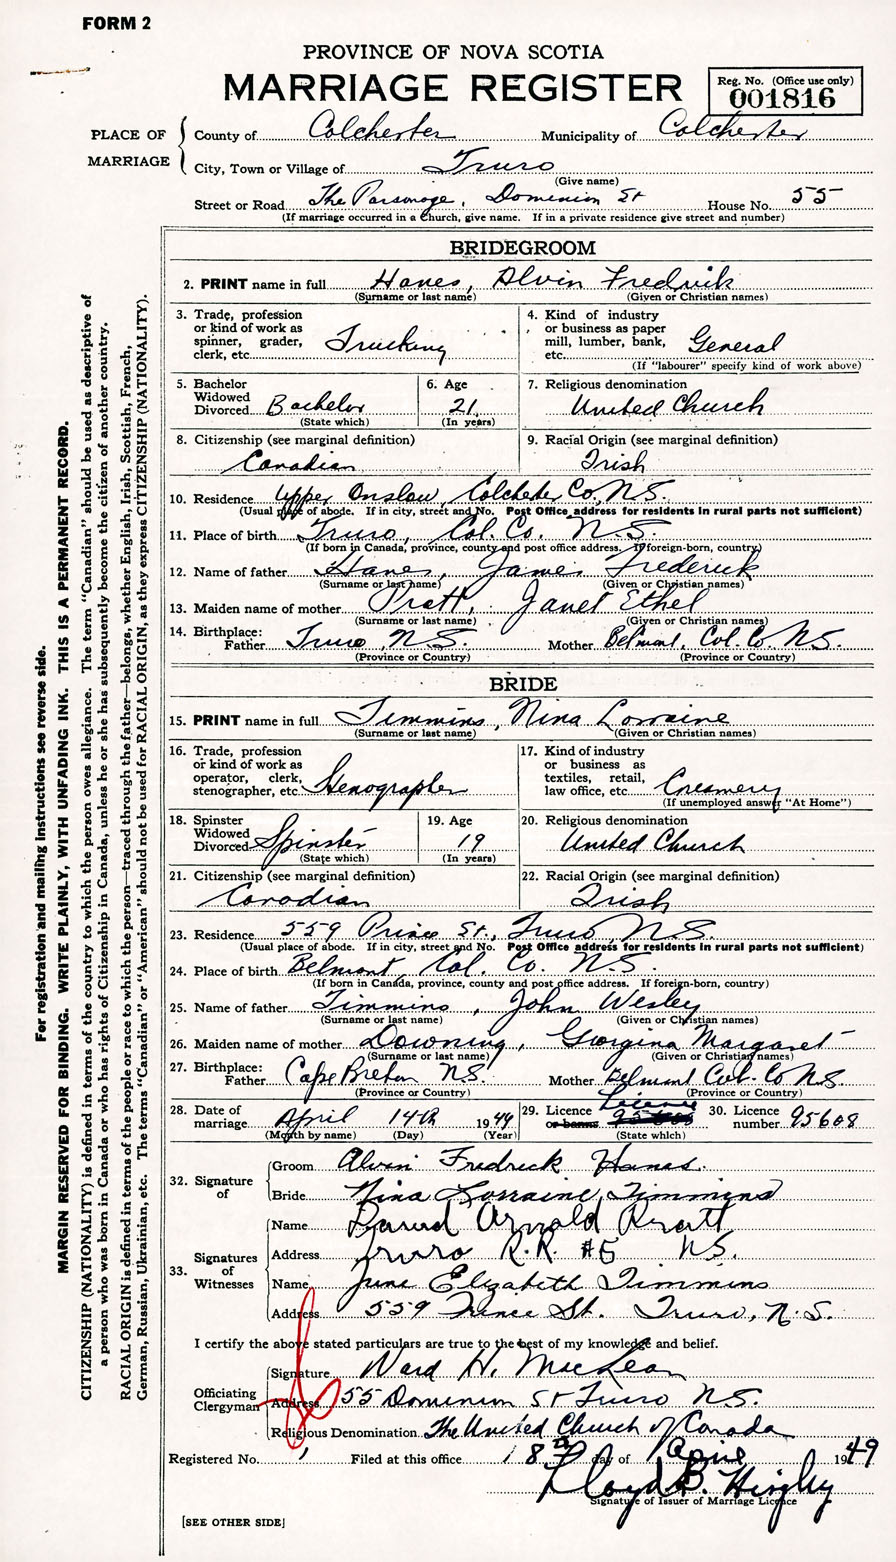 FORM 2
PROVINCE OF NOVA SCOTIA
MARRIAGE REGISTER
Reg. No. (Office use only)
001816
PLACE OF MARRIAGE
County of Colchester Municipality of Colchester
City, Town or Village of Truro
(Give name)
Street or Road The Parsonage, Dominion St House No. 55
(If marriage occurred in a church, give name. If in a private residence give street and number)
BRIDEGROOM
2. PRINT name in full Hanes, Alvin Fredrik
(Surname or last name) (Given or Christian names)
3. Trade, profession or kind of work as spinner, grader, clerk, etc. Trucking
4. Kind of industry or business as paper mill, lumber, bank, etc. General
(If "labourer" specify kind of work above)
5. Bachelor Widowed Divorced Bachelor
(State which)
6. Age 21
(In years)
7. Religious denomination United Church
8. Citizenship (see marginal definition) Canadian
9. Racial Origin (see marginal definition) Irish
10. Residence Upper Onslow, Colchester Co. N.S.
(Usual place of abode. If in city, street and No. Post Office address for residents in rural parts not sufficient)
11. Place of birth Truro, Col. Co. N.S.
(If born in Canada, province, county and post office address. If foreign-born, country)
12. Name of father Hanes, James Frederick
(Surname or last name) (Given or Christian names)
13. Maiden name of mother Pratt, Janet Ethel
(Surname or last name) (Given or Christian names)
14. Birthplace: Father Truro, N.S. Mother Belmont, Col. Co. N.S.
(Province or Country) (Province or Country)
BRIDE
15. PRINT name in full Timmins, Nina Lorraine
(Surname or last name) (Given or Christian names)
16. Trade, profession or kind of work as operator, clerk, stenographer, etc. Stenographer
17. Kind of industry or business as textiles, retail, law office, etc. Creamery
(If unemployed answer "At Home")
18. Spinster Widowed Divorced Spinster
(State which)
19. Age 19
(In years)
20. Religious denomination United Church
21. Citizenship (see marginal definition) Canadian
22. Racial Origin (see marginal definition) Irish
23. Residence 559 Prince St., Truro, N.S.
(Usual place of abode. If in city, street and No. Post Office address for residents in rural parts not sufficient)
24. Place of birth Belmont, Col. Co. N.S.
(If born in Canada, province, county and post office address. If foreign-born, country)
25. Name of father Timmins, John Wesley
(Surname or last name) (Given or Christian names)
26. Maiden name of mother Downing, Georgina Margaret
(Surname or last name) (Given or Christian names)
27. Birthplace: Father Cape Breton N.S. Mother Belmont Col. Co N.S.
(Province or Country) (Province or Country)
28. Date of marriage April 14th 1949
(Month by name) (Day) (Year)
29. Licence or banns Licence
(State which)
30. Licence number 95608
32. Signature of
Groom Alvin Fredrick Hanes.
Bride Nina Lorraine Timmins
33. Signatures of Witnesses
Name Arnold
Address Truro R.R. #5 N.S.
Name June Elizabeth Timmins
Address 559 Prince St. Truro, N.S.
I certify the above stated particulars are true to the best of my knowledge and belief.
Officiating Clergyman
Signature Ward H. MacLean
Address 55 Dominion St Truro N.S.
Religious Denomination The United Church of Canada
Registered No. Filed at this office 18th day of April 1949
Lloyd B. Hingley
Signature of Issuer of Marriage Licence
[SEE OTHER SIDE]
For registration and mailing instructions see reverse side.
MARGIN RESERVED FOR BINDING. WRITE PLAINLY, WITH UNFADING INK. THIS IS A PERMANENT RECORD.
CITIZENSHIP (NATIONALITY) is defined in terms of the country to which the person owes allegiance. The term "Canadian" should be used as descriptive of
a person who was born in Canada or who has rights of Citizenship in Canada, unless he or she has subsequently become the citizen of another country.
RACIAL ORIGIN is defined in terms of the people or race to which the person—traced through the father—belongs, whether English, Irish, Scottish, French,
German, Russian, Ukrainian, etc. The terms "Canadian" or "American" should not be used for RACIAL ORIGIN, as they express CITIZENSHIP (NATIONALITY).